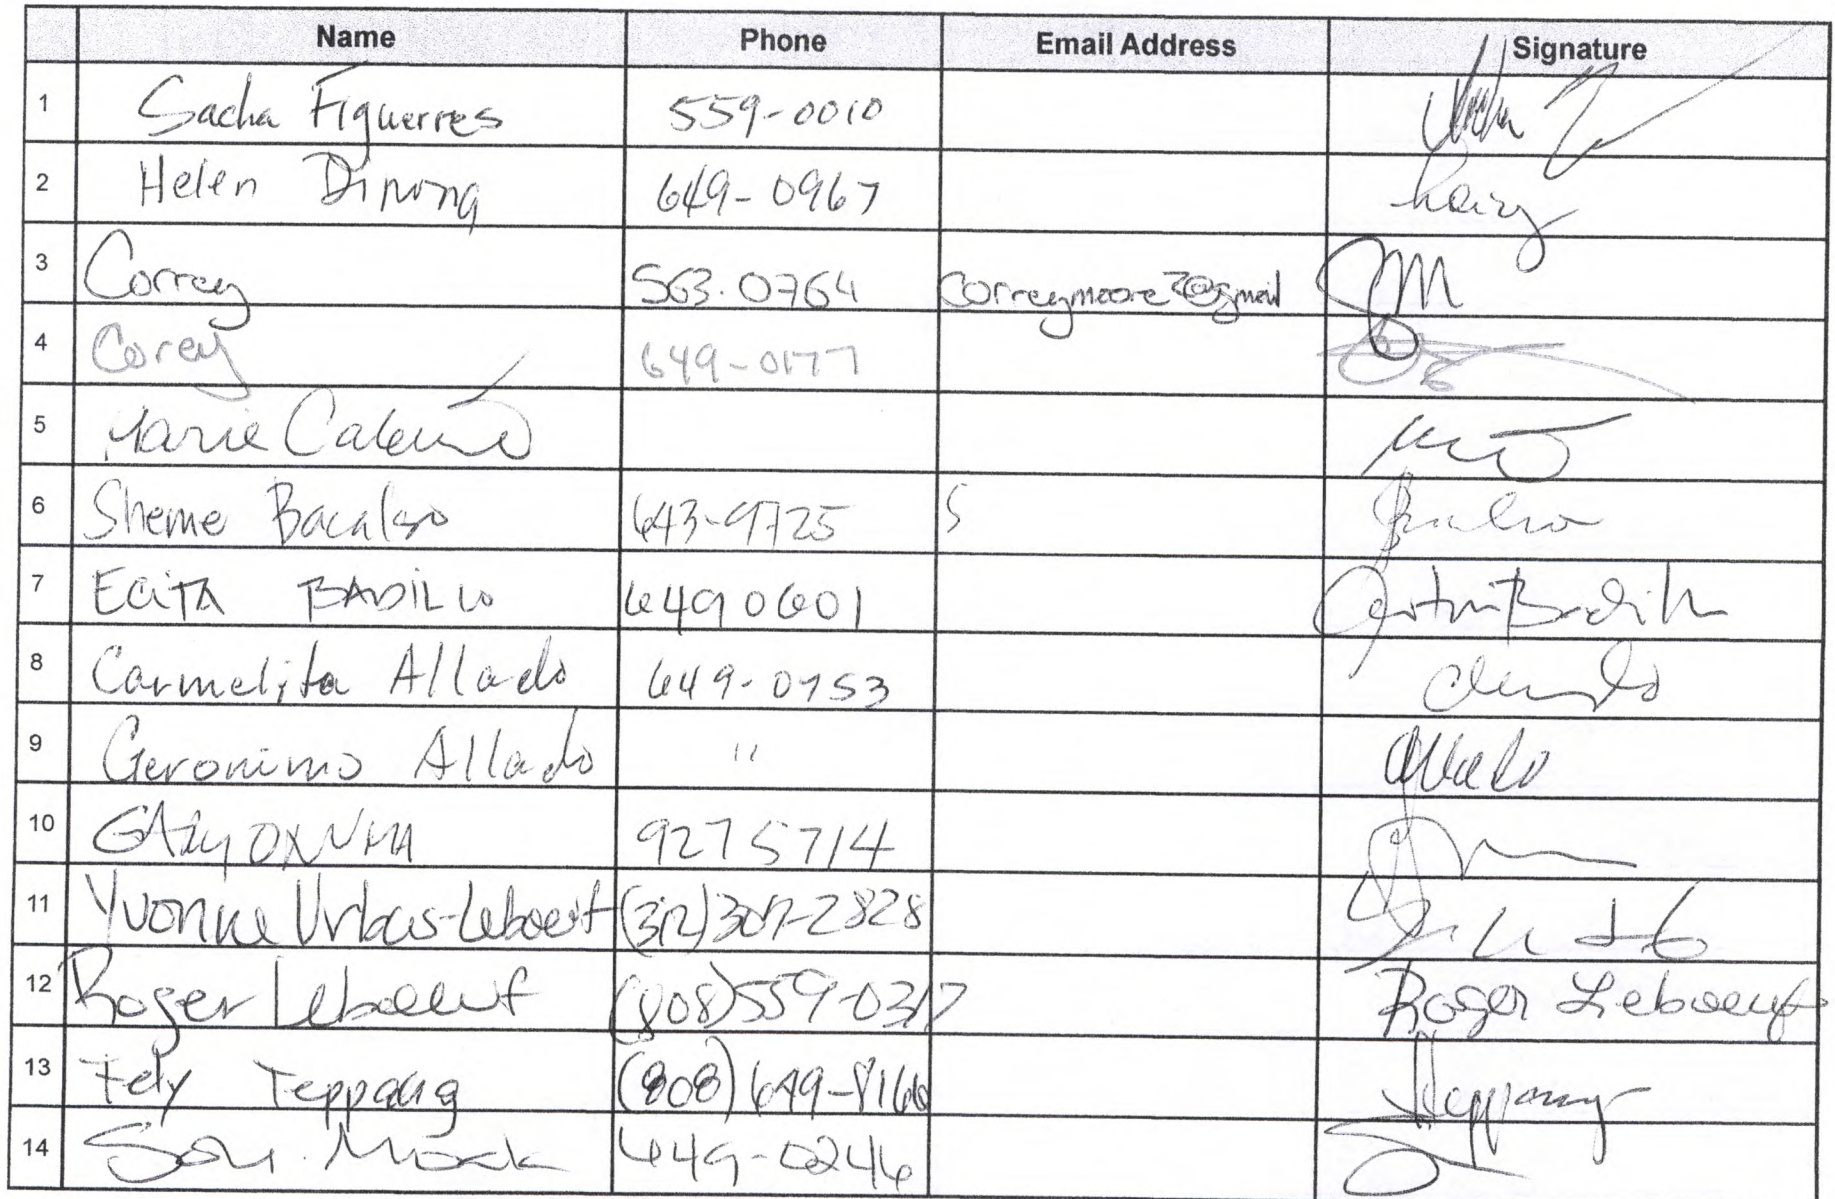 Name Phone Email Address Signature
1 Sacha Figuerres 559-0010
2 Helen Dinong 649-0967
3 Correy 563.0764 correymoore7@gmail
4 Corey 649-0177
5 Marie
6 Sheme Bacalso 643-9725 S
7 EciTA BADILLO 6490601
8 Carmelita Allado 649-0753
9 Geronimo Allado " Allado
10 GARY 9275714
11 Yvonne Urbas-Leboeuf (312)307-2828
12 Roger Leboeuf (808)559-0317 Roger Leboeuf
13 Fely Teppang (808)649-8166 Teppang
14 649-0246